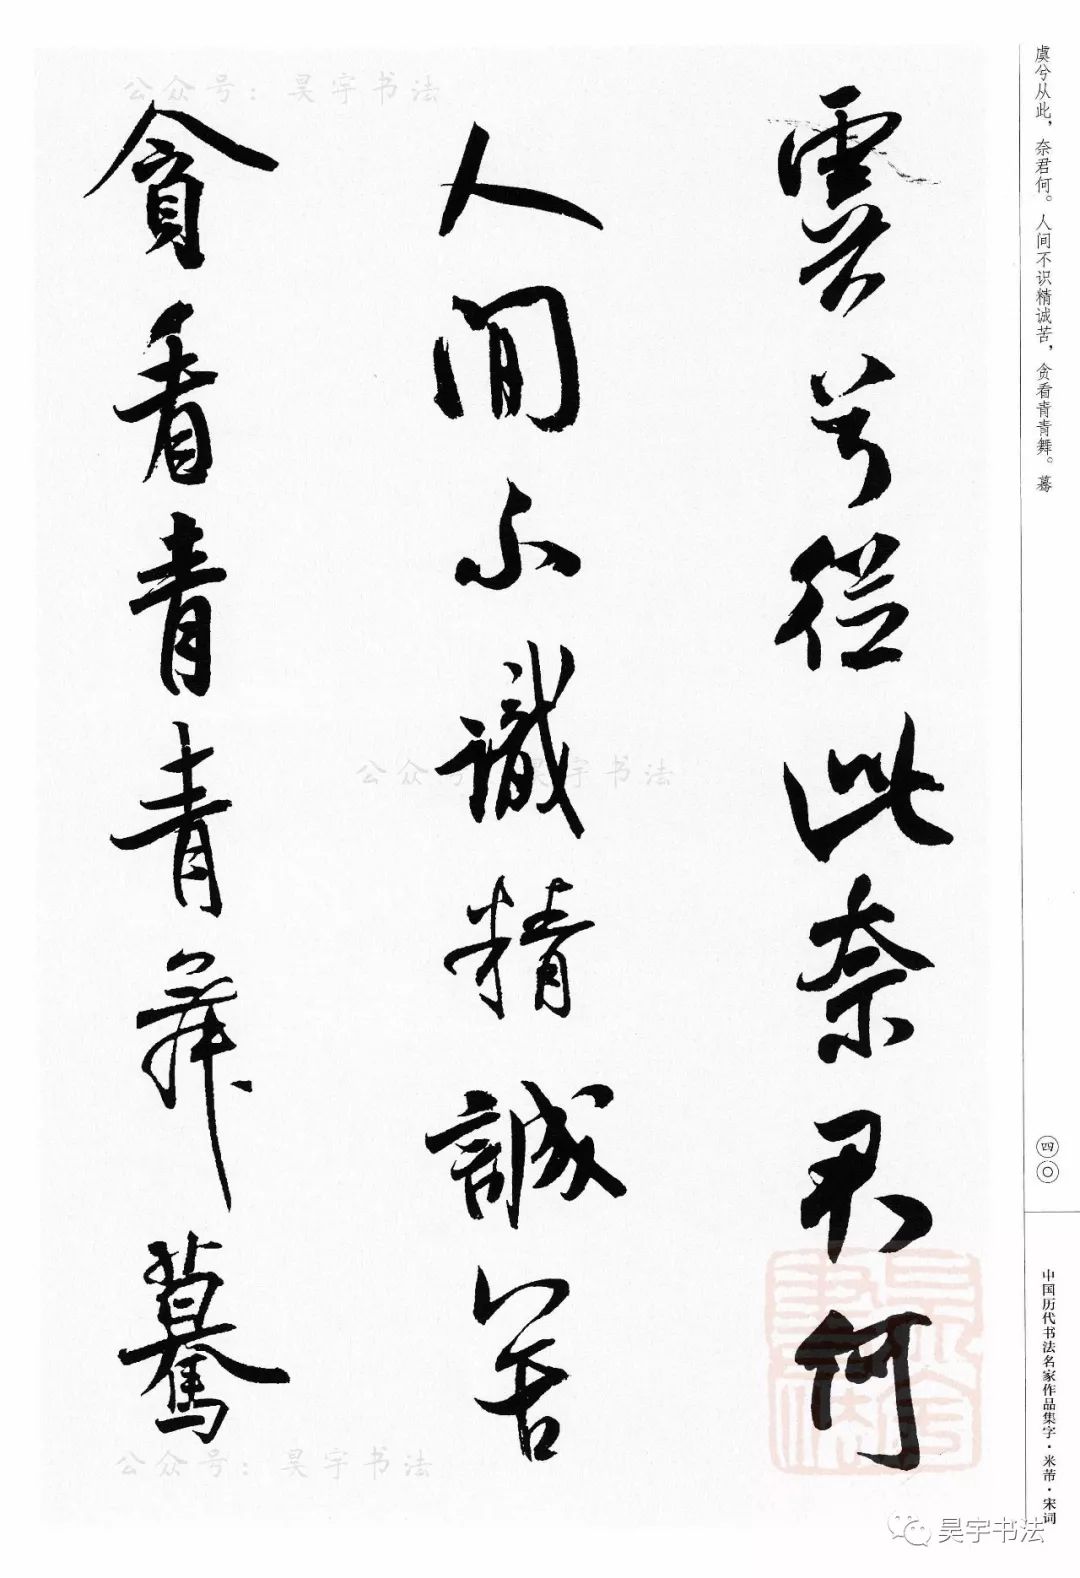 虞兮從此奈君何
人間不識精誠苦
貪看青青舞驀
虞兮从此，奈君何。人间不识精诚苦，贪看青青舞。蓦
四〇
中国历代书法名家作品集字·米芾·宋词
公众号：昊宇书法
公众号：昊宇书法
公众号：昊宇书法
昊宇书法